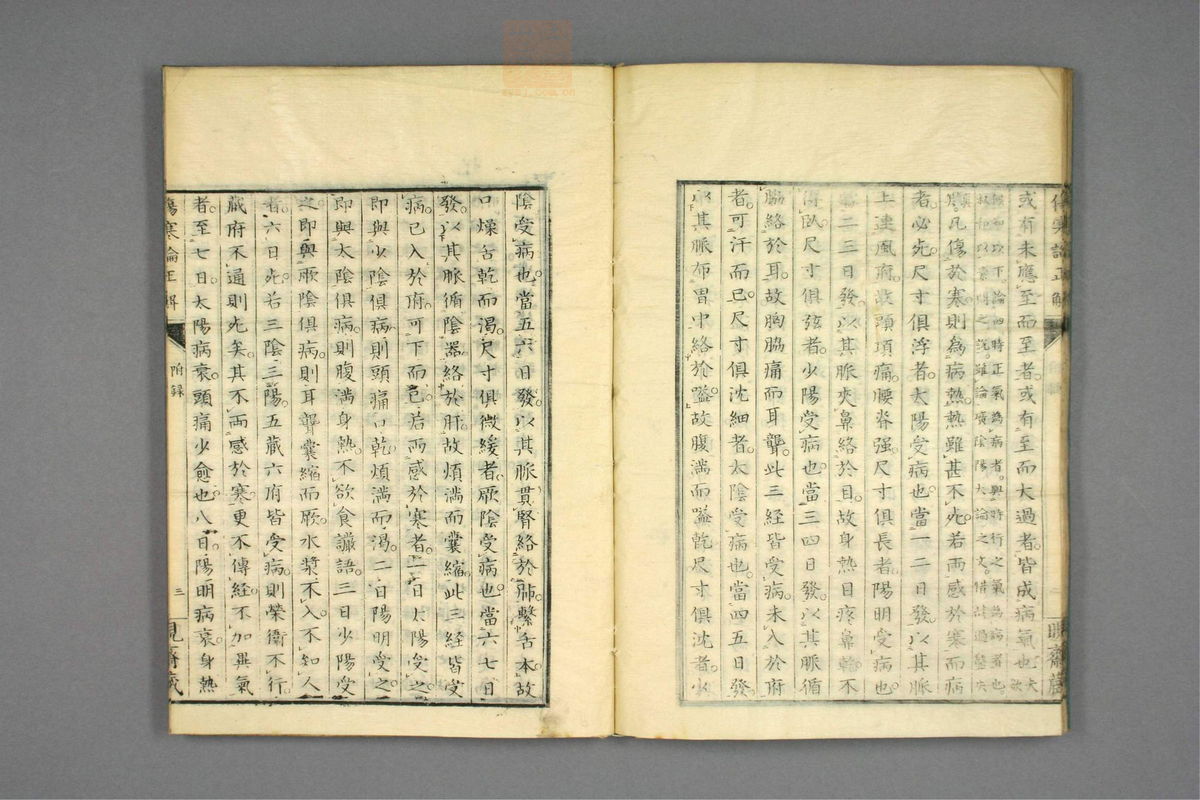 或有未應至而至者或有至而大過者皆成病氣也大欲
凡傷於寒則為病熱熱雖甚不死若兩感於寒而病
者必死尺寸俱浮者太陽受病也當一二日發以其脈
上連風府故頭項痛腰脊强尺寸俱長者陽明受病也
當二三日發以其脈夾鼻絡於目故身熱目疼鼻乾不
得臥尺寸俱弦者少陽受病也當三四日發以其脈循
脇絡於耳故胸脇痛而耳聾此三経皆受病未入於府
者可汗而已尺寸俱沈細者太陰受病也當四五日發
以其脈布胃中絡於嗌故腹満而嗌乾尺寸俱沈者少
陰受病也當五六日發以其脈貫腎絡於肺繫舌本故
口燥舌乾而渇尺寸俱微緩者厥陰受病也當六七日
發以其脈循陰器絡於肝故煩満而嚢縮此三経皆受
病已入於府可下而已若兩感於寒者一日太陽受之
即與少陰俱病則頭痛口乾煩満而渇二日陽明受之
即與太陰俱病則腹満身熱不欲食讝語三日少陽受
之即與厥陰俱病則耳聾嚢縮而厥水漿不入不知人
者六日死若三陰三陽五藏六府皆受病則榮衛不行
藏府不通則死矣其不兩感於寒更不傳経不加異氣
者至七日太陽病衰頭痛少愈也八日陽明病衰身熱
傷寒論正解
附録
三